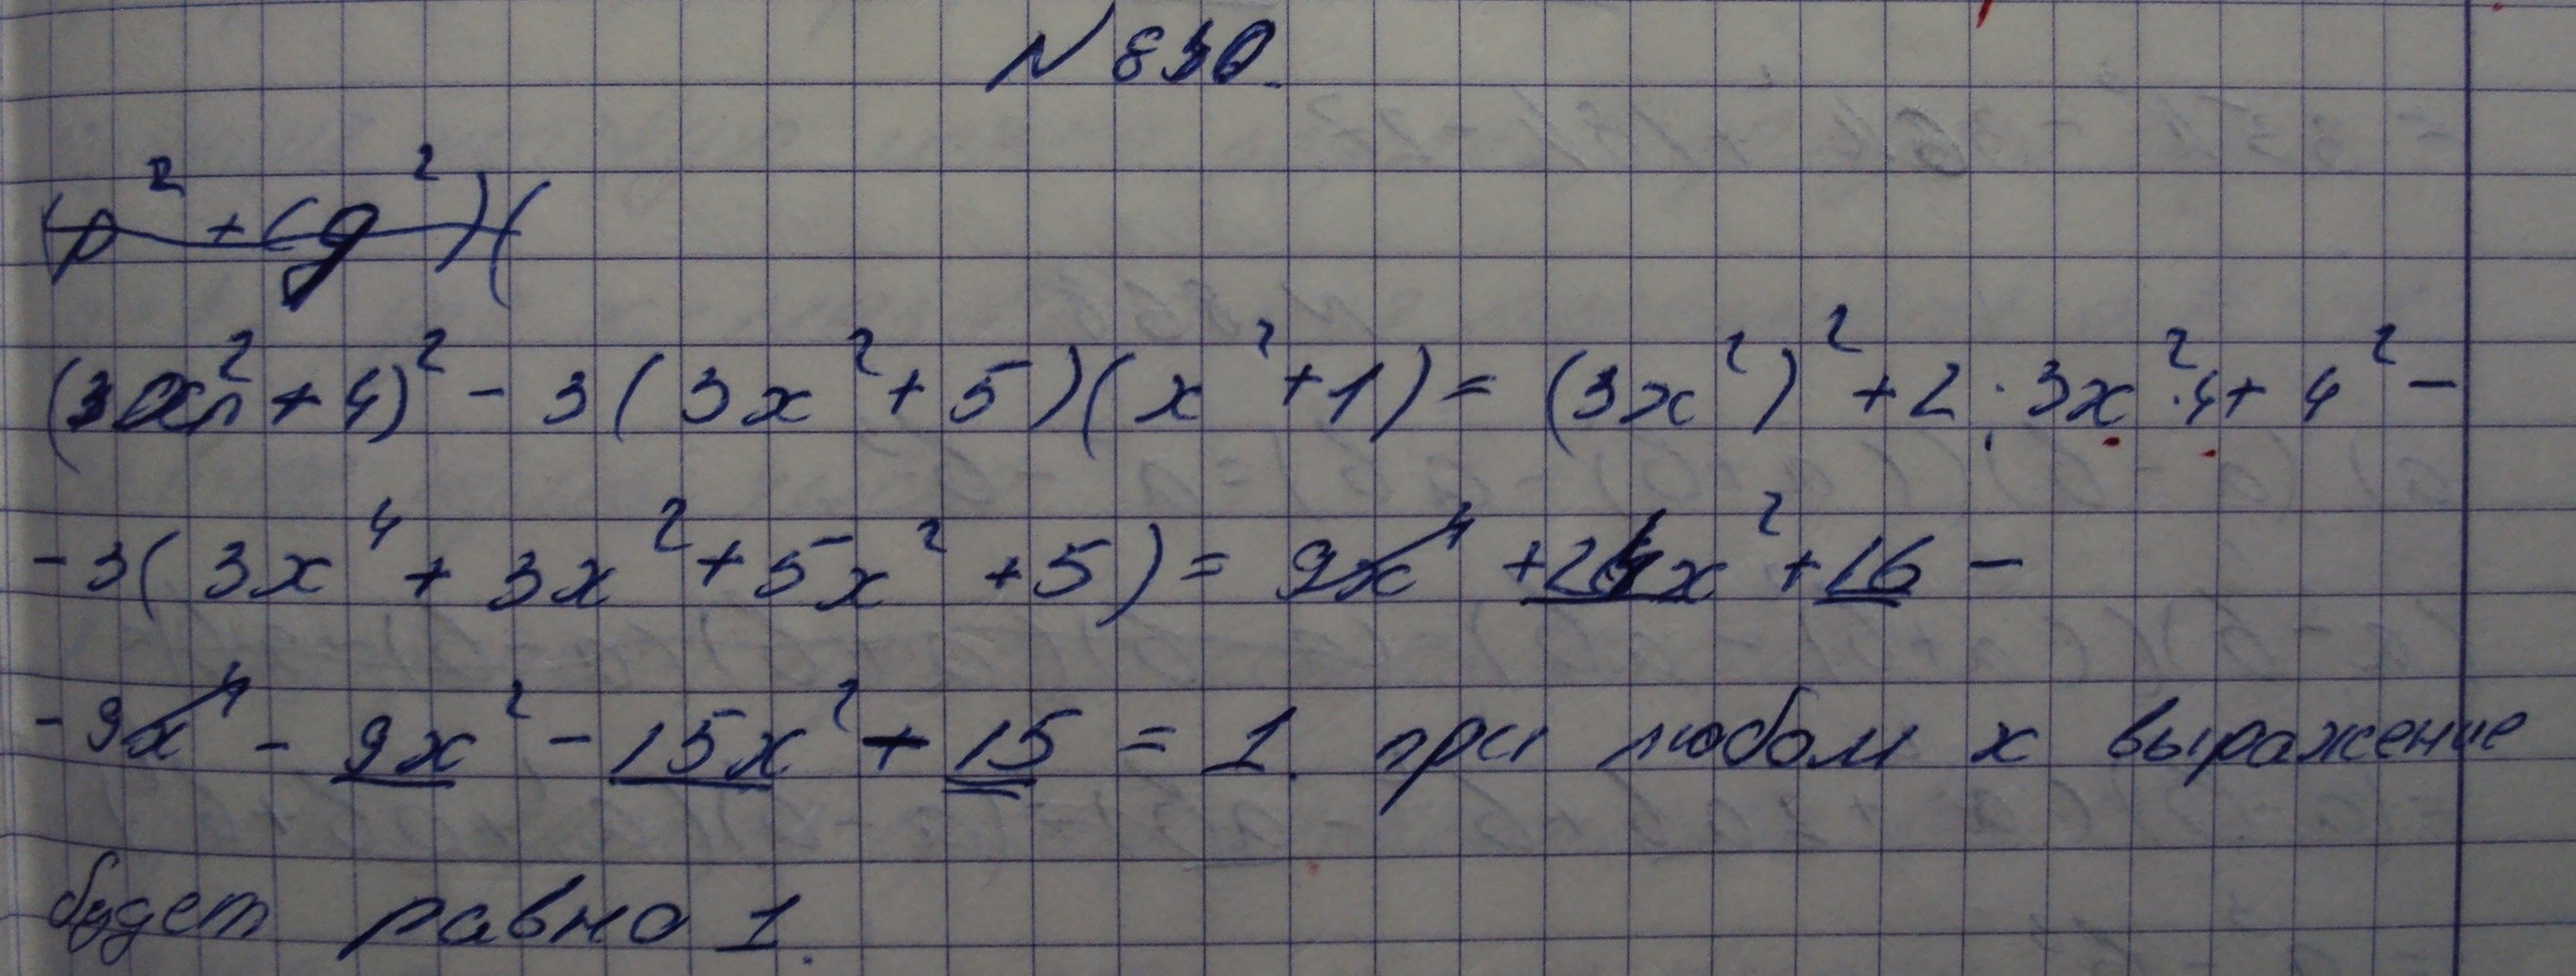 N 830.
(p² + (q²)(
(3x² + 4)² - 3(3x² + 5)(x² + 1) = (3x²)² + 2 · 3x² · 4 + 4² -
- 3(3x⁴ + 3x² + 5x² + 5) = 9x⁴ + 24x² + 16 -
- 9x⁴ - 9x² - 15x² - 15 = 1. при любом x выражение
будет равно 1.